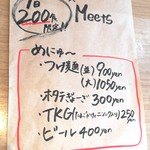 1日
200食
限定!!
Meets
めにゅ〜
・つけ麺(並)900yen
(大)1050yen
・ホタテぎょーざ300yen
・TKG(たまごかけ)250yen
・ビール400yen